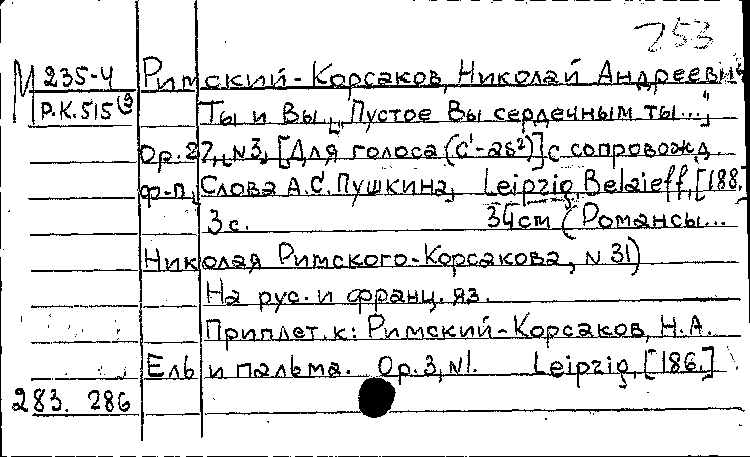 253
М 235-4 Римский-Корсаков, Николай Андреевич
Р.К.515(3 Ты и Вы „Пустое Вы сердечным ты..."
Op. 27, N3, [Для голоса (c¹-as²)] с сопровожд
ф-п, Слова А.С. Пушкина, Leipzig, Belaieff, [188.]
3 с. 34cm (Романсы...
Николая Римского-Корсакова, N 31)
На рус. и франц. яз.
Приплет. к: Римский-Корсаков, Н.А.
Ель и пальма. Op. 3, N1. Leipzig, [186.]
283. 286